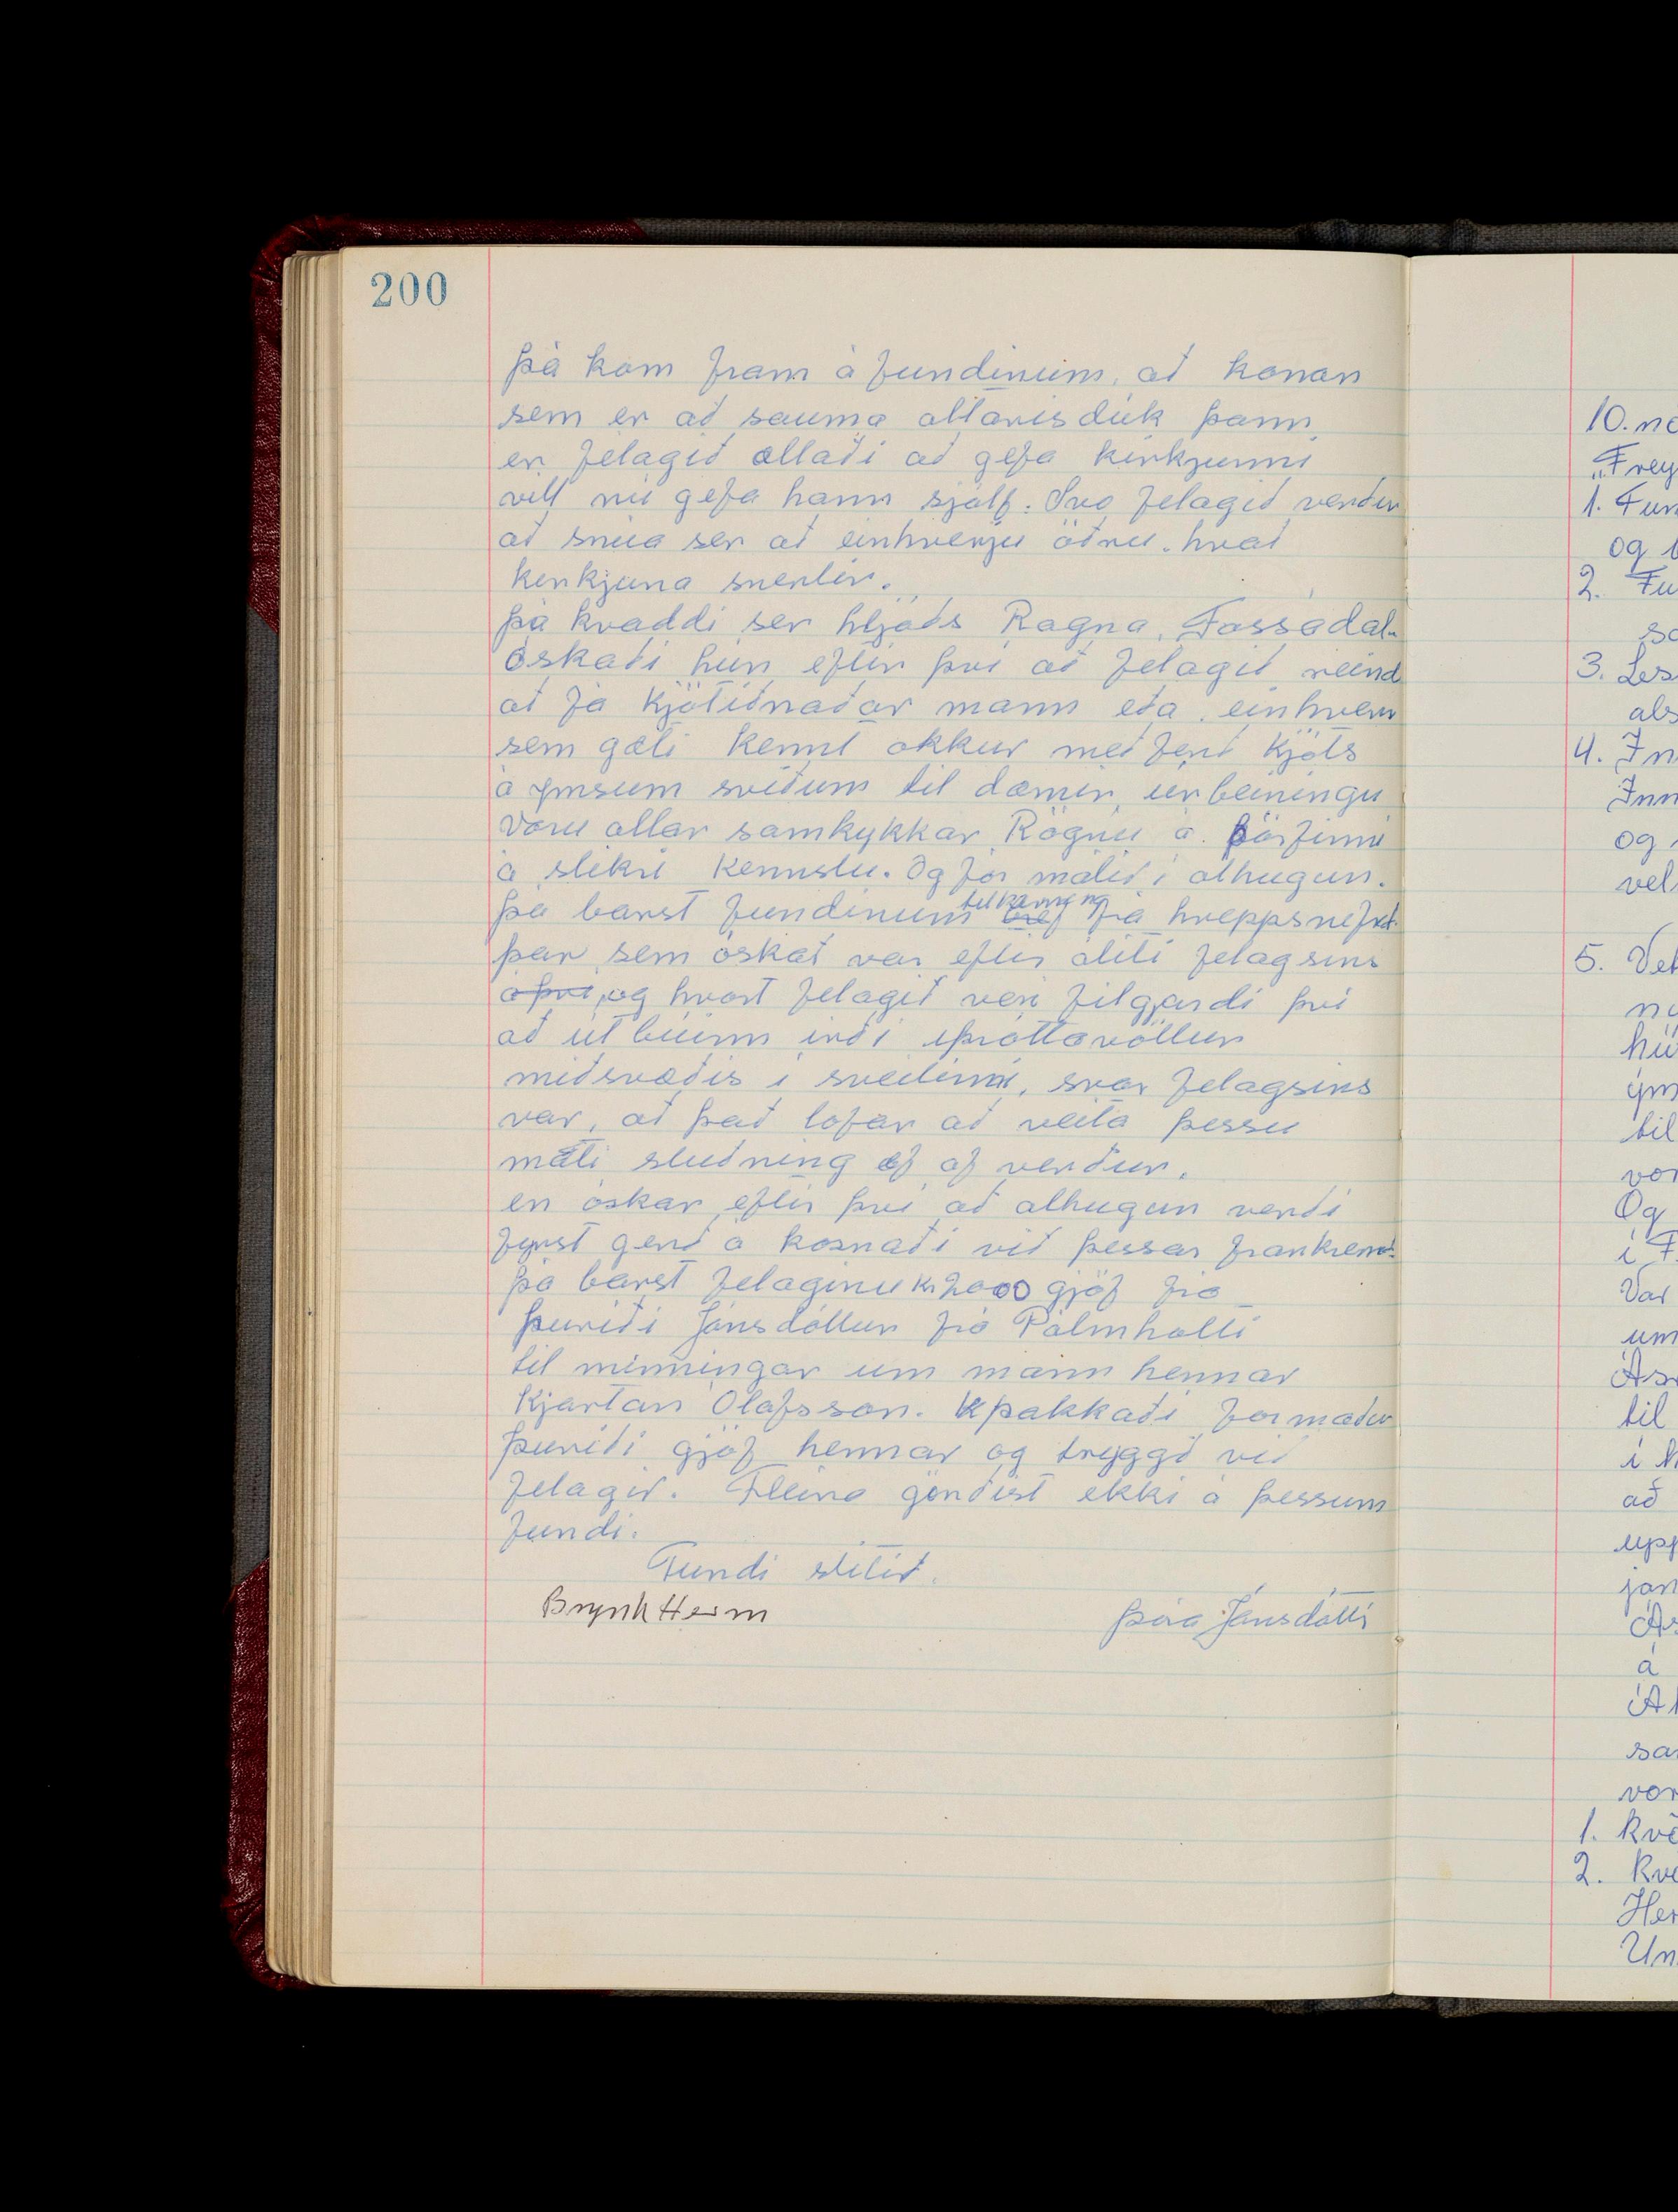 200
þá kom fram á fundinum, að konan
sem er að sauma altarisdúk þann,
er felagið ætlaði að gefa kirkjunni
vill nú gefa hann sjálf. Svo felagið verður
að snúa ser að einhverju öðru. hvað
kirkjuna snertir.
þá kvaddi ser hljóðs Ragna, Fossádal.
óskaði hún eftir því að felagið reind
að fá kjötiðnaðar mann eða einhvern
sem gæti kennt okkur meðferð kjöts
á ymsum sviðum til dæmis, úrbeiningu
voru allar samþykkar Rögnu á þörfinni
á slikri kennslu. Og fór málið í athugun.
þá barst fundinum tilkynning frá hreppsnefnd.
þar sem óskað var eftir áliti felagsins
á því, og hvort felagið veri filgjandi því
að útbúinn irði íþróttavöllur
miðsvæðis í sveitinni, svar felagsins
var, at það lofar að veita þessu
máli stuðning ef af verður.
en óskar eftir því að athugun verði
fyrst gerð á kosnaði við þessar framkvemd.
þá barst felaginu kr 2000 gjöf frá
þuriði Jónsdóttur frá Pálmholti
til minningar um mann hennar
Kjartan Ólafsson. þakkaði formaður
þuriði gjöf hennar og tryggð við
felagið. Fleira gerðist ekki á þessum
fundi.
Fundi slitið.
Brynh Herm
þóra Jónsdóttir
10. nó
„Frey
1. Fun
og
2. Fu
3. Les
4. In
Inn
og
vel
5. Vet
hú
ým
til
vor
Og
í F
Var
um
til
í
að
upp
jan
á
sa
vor
1. Kve
2. Kve
Her
Un